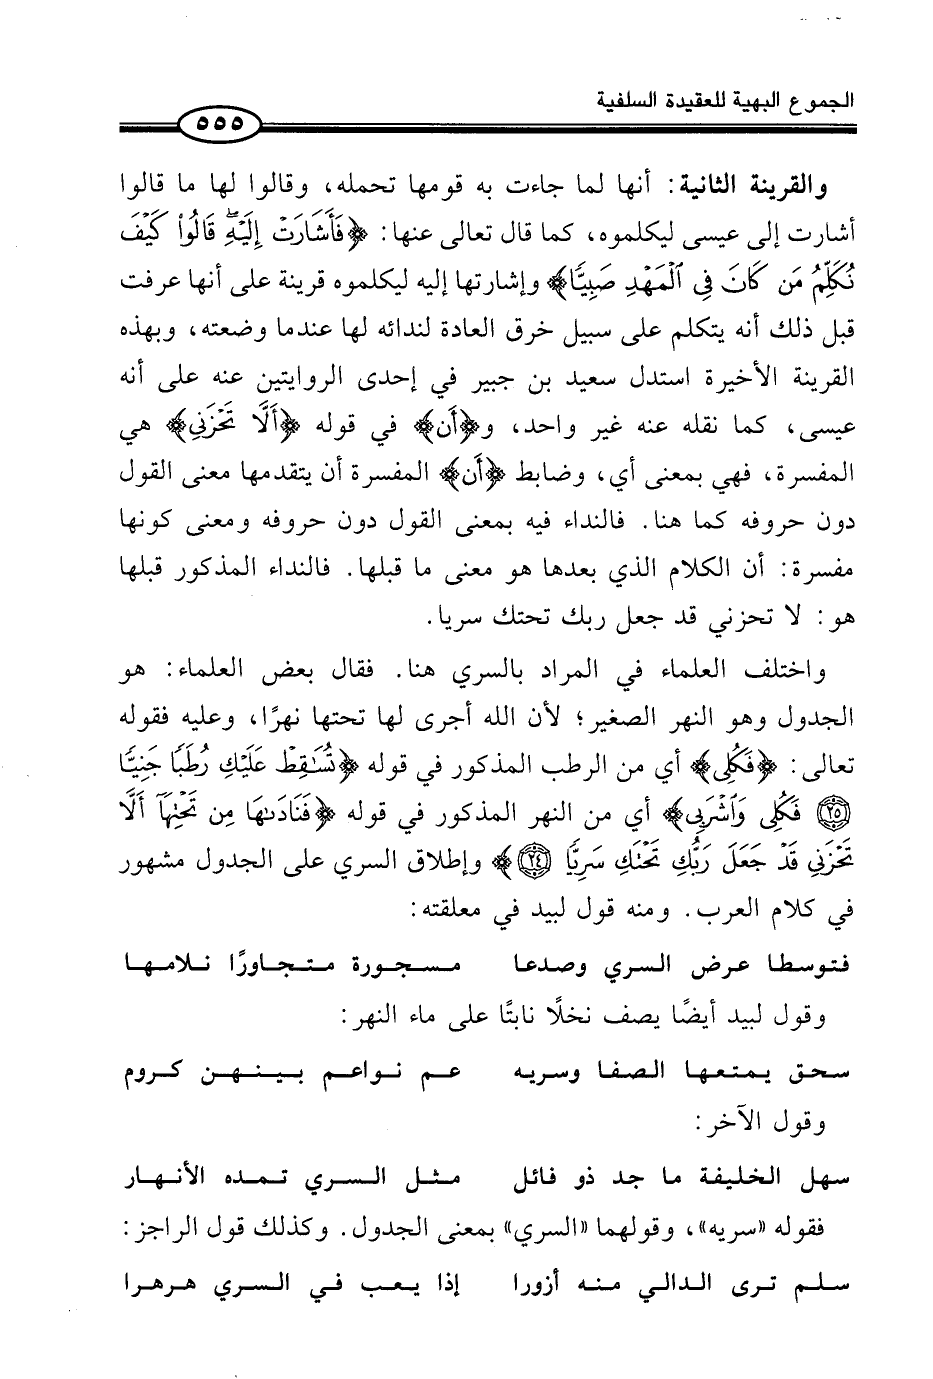 الجموع البهية للعقيدة السلفية
٥٥٥
والقرينة الثانية: أنها لما جاءت به قومها تحمله، وقالوا لها ما قالوا
أشارت إلى عيسى ليكلموه، كما قال تعالى عنها: ﴿فَأَشَارَتْ إِلَيْهِۖ قَالُوا۟ كَيْفَ
نُكَلِّمُ مَن كَانَ فِى ٱلْمَهْدِ صَبِيًّا﴾ وإشارتها إليه ليكلموه قرينة على أنها عرفت
قبل ذلك أنه يتكلم على سبيل خرق العادة لندائه لها عندما وضعته، وبهذه
القرينة الأخيرة استدل سعيد بن جبير في إحدى الروايتين عنه على أنه
عيسى، كما نقله عنه غير واحد، و﴿أَن﴾ في قوله ﴿أَلَّا تَحْزَنِى﴾ هي
المفسرة، فهي بمعنى أي، وضابط ﴿أَن﴾ المفسرة أن يتقدمها معنى القول
دون حروفه كما هنا. فالنداء فيه بمعنى القول دون حروفه ومعنى كونها
مفسرة: أن الكلام الذي بعدها هو معنى ما قبلها. فالنداء المذكور قبلها
هو: لا تحزني قد جعل ربك تحتك سريا.
واختلف العلماء في المراد بالسري هنا. فقال بعض العلماء: هو
الجدول وهو النهر الصغير؛ لأن الله أجرى لها تحتها نهرًا، وعليه فقوله
تعالى: ﴿فَكُلِى﴾ أي من الرطب المذكور في قوله ﴿تُسَٰقِطْ عَلَيْكِ رُطَبًا جَنِيًّا
٢٥ فَكُلِى وَٱشْرَبِى﴾ أي من النهر المذكور في قوله ﴿فَنَادَىٰهَا مِن تَحْتِهَآ أَلَّا
تَحْزَنِى قَدْ جَعَلَ رَبُّكِ تَحْتَكِ سَرِيًّا ٢٤﴾ وإطلاق السري على الجدول مشهور
في كلام العرب. ومنه قول لبيد في معلقته:
فتوسطا عرض السري وصدعا مسجورة متجاورًا نلامها
وقول لبيد أيضًا يصف نخلًا نابتًا على ماء النهر:
سحق يمتعها الصفا وسريه عم نواعم بينهن كروم
وقول الآخر:
سهل الخليفة ما جد ذو فائل مثل السري تمده الأنهار
فقوله «سريه»، وقولهما «السري» بمعنى الجدول. وكذلك قول الراجز:
سلم ترى الدالي منه أزورا إذا يعب في السري هرهرا